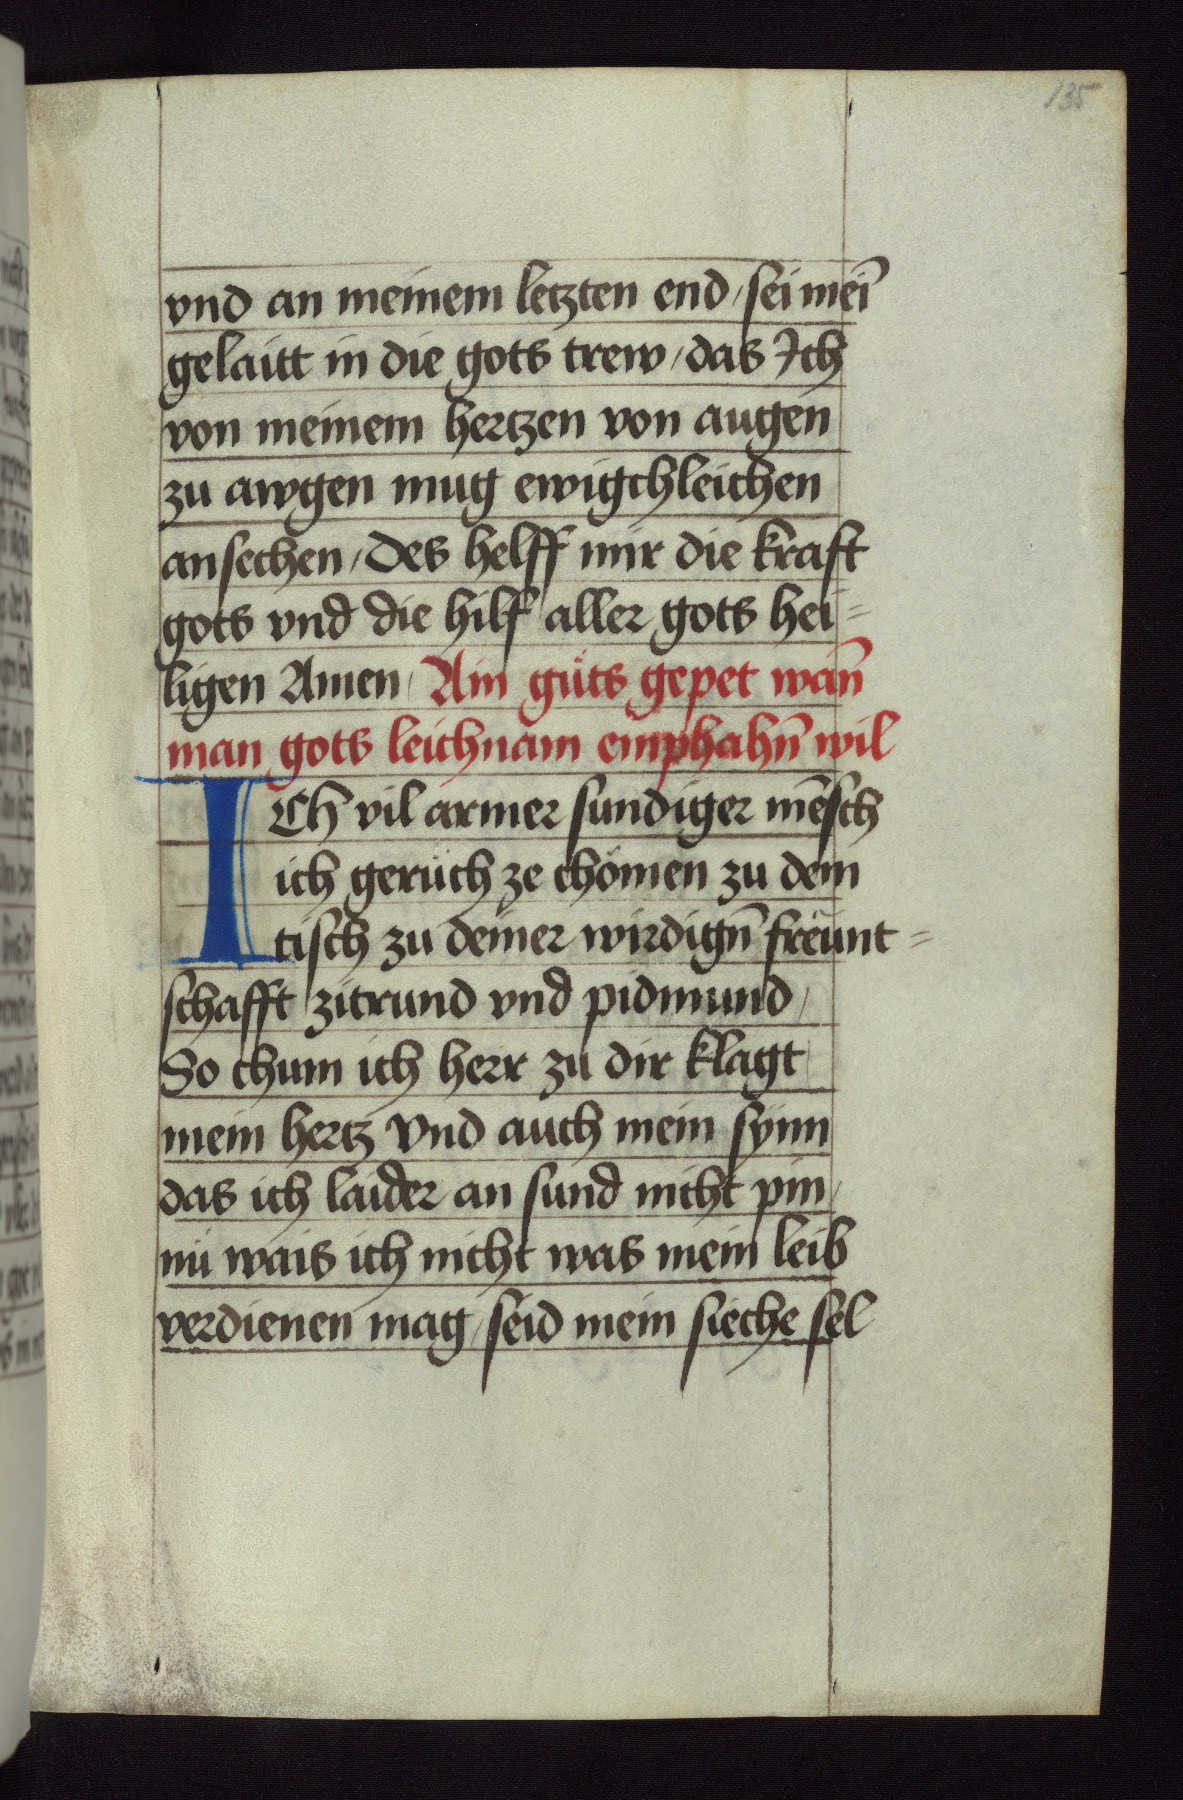 135
vnd an meinem letzten end / sei mei̅
gelaitt in die gots trew / das Ich
von meinem hertzen von augen
zu awgen mug ewigchleichen
ansechen / Des helff mir die kraft
gots vnd die hilf aller gots hei=
ligen Amen / Ain güts gepet wan̅
man gots leichnam emphahn̅ wil
ICh vil armer sundiger me̅sch
ich gerüch ze chömen zu dem
tisch zu deiner wirdign̅ freünt=
schafft zitrund vnd pidmund /
So chum ich herr zu dir klagt
mein hertz Vnd auch mein synn
das ich laider an sund nicht pin /
nü wais ich nicht was mein leib
verdienen mag / seid mein sieche sel